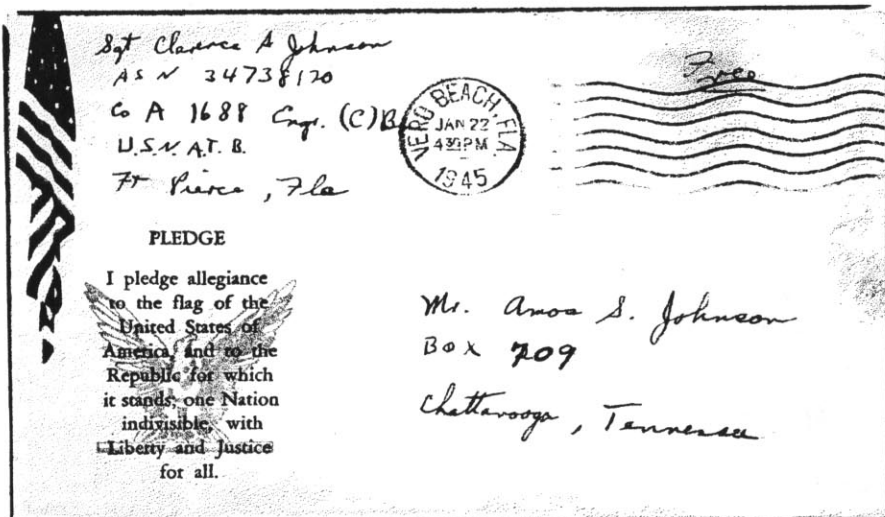 Sgt Clarence A Johnson
ASN 34738120
Co A 1688 Engr. (C) B
U.S.N.A.T.B.
Ft Pierce, Fla
VERO BEACH, FLA.
JAN 22
430 PM
1945
Free
PLEDGE
I pledge allegiance
to the flag of the
United States of
America, and to the
Republic for which
it stands; one Nation
indivisible, with
Liberty and Justice
for all.
Mr. Amos S. Johnson
Box 709
Chattanooga, Tennessee